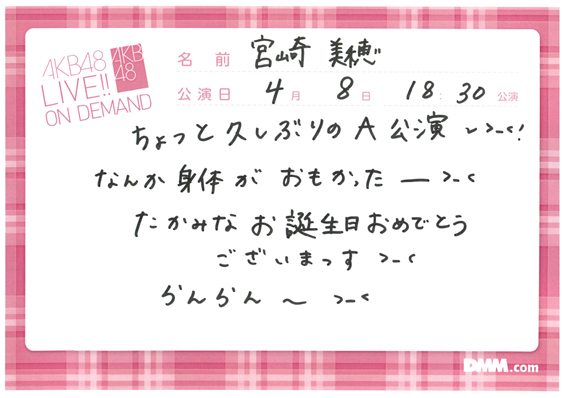 AKB48
LIVE!!
ON DEMAND
AKB
48
名前 宮崎 美穂
公演日 4月 8日 18:30公演
ちょっと久しぶりの A 公演 ~>_<!
なんか身体が おもかった ー >_<
たかみな お誕生日おめでとう
ございまっす >_<
らんらん ~ >_<
DMM.com